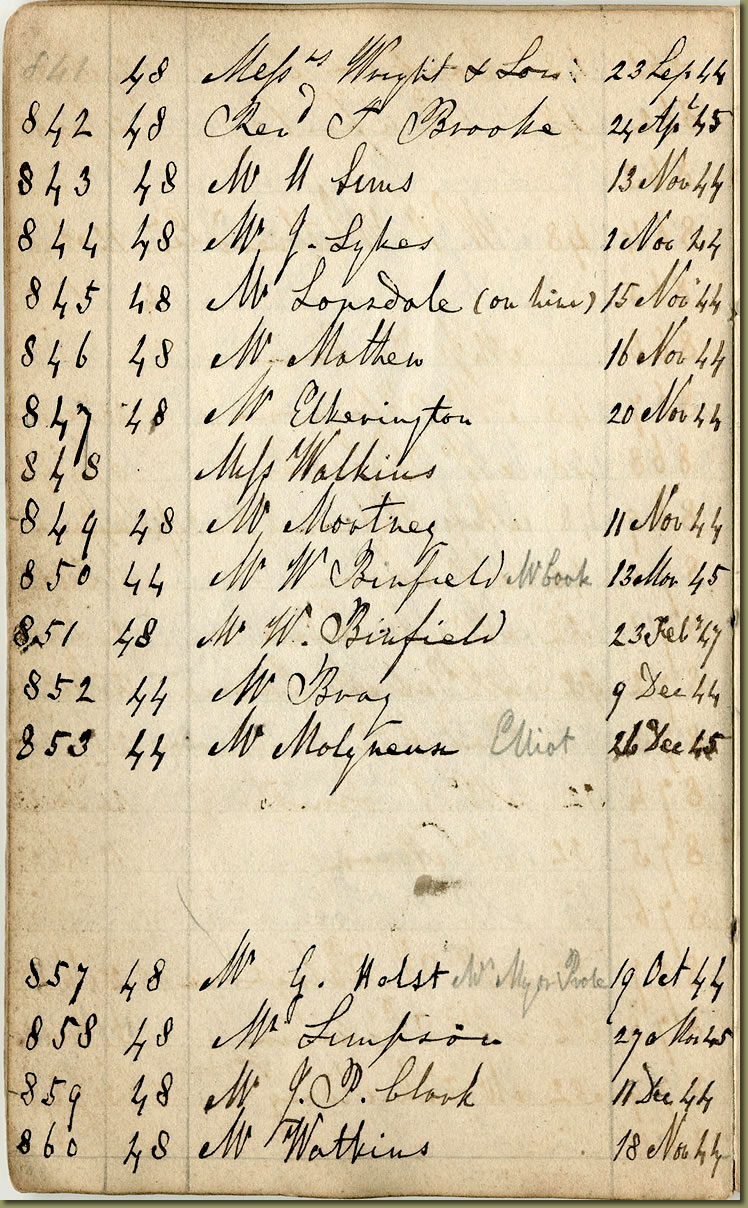 841 48 Messrs Wright & Son 23 Sep 44
842 48 Revd T Brooke 24 Apl 45
843 48 Mr H Sims 13 Nov 44
844 48 Mr J. Sykes 1 Nov 44
845 48 Mr Lonsdale (on hire) 15 Nov 44
846 48 Mr Mathew 16 Nov 44
847 48 Mr Etherington 20 Nov 44
848 Messs Watkins
849 48 Mr 11 Nov 44
850 44 Mr W Binfield Mr Cook 13 Mar 45
851 48 Mr W. Binfield 23 Feby 47
852 44 Mr Bray 9 Dec 44
853 44 Mr Molyneux Elliot 26 Dec 45
857 48 Mr G. Holst 19 Oct 44
858 48 Mr Simpson 27 Mar 45
859 48 Mr J. P. Clark 11 Dec 44
860 48 Mr Watkins 18 Nov 44